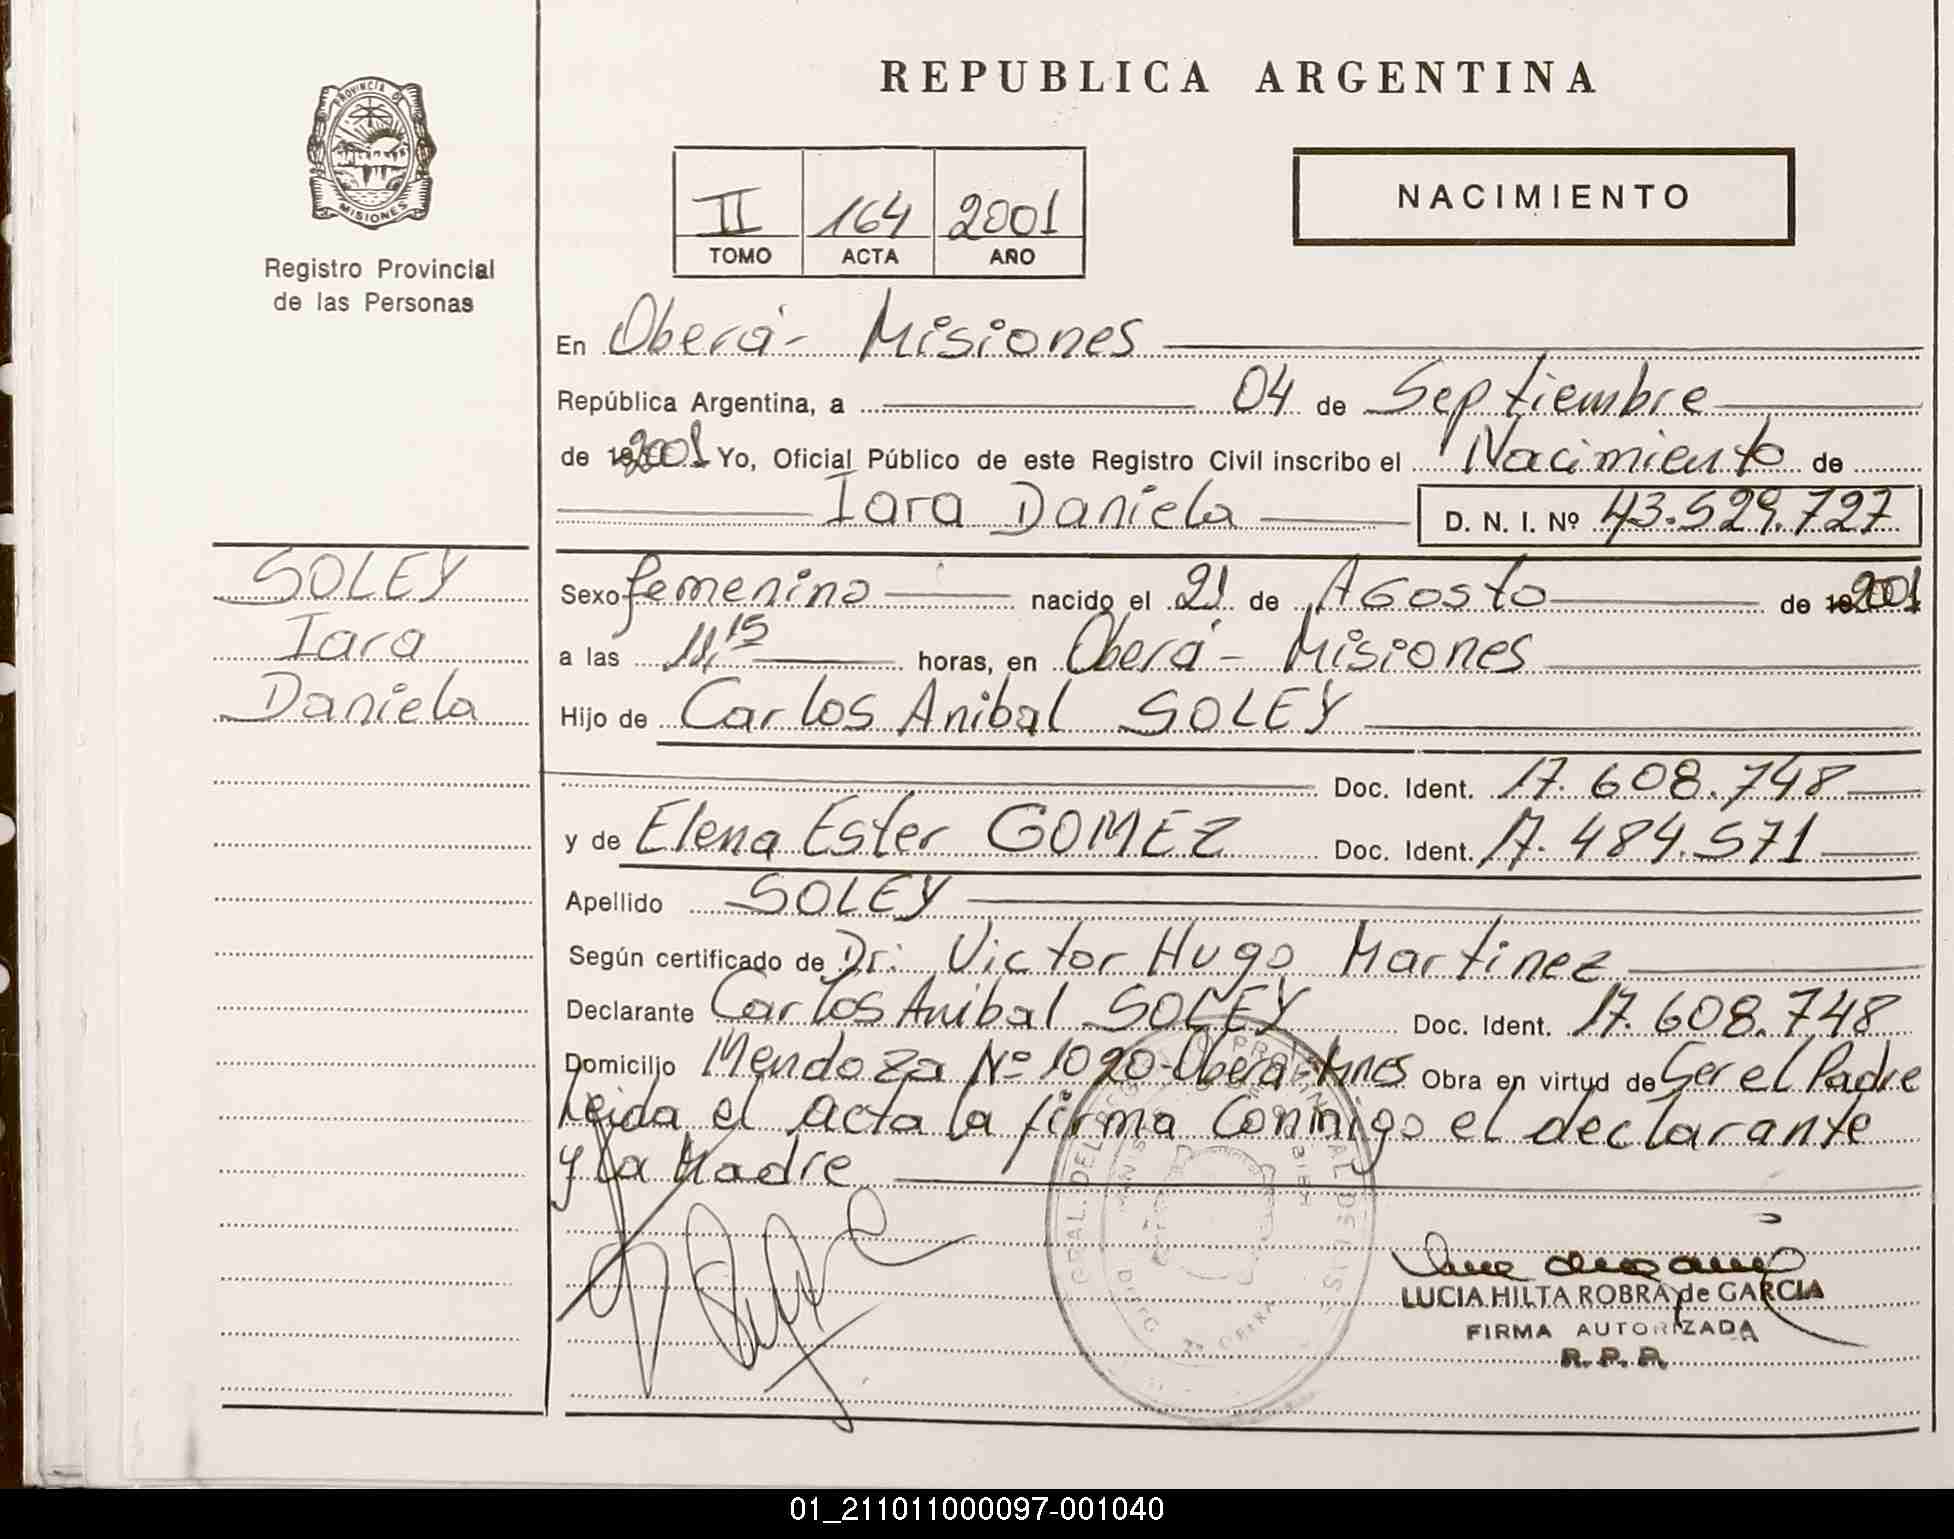 REPUBLICA ARGENTINA
PROVINCIA DE
MISIONES
Registro Provincial
de las Personas
II 164 2001
TOMO ACTA AÑO
NACIMIENTO
En Oberá - Misiones
República Argentina, a 04 de Septiembre
de 2001 Yo, Oficial Público de este Registro Civil inscribo el Nacimiento de
Iara Daniela D. N. I. Nº 43.529.727
SOLEY
Iara
Daniela
Sexo femenino nacido el 21 de Agosto de 2001
a las 11,15 horas, en Oberá - Misiones
Hijo de Carlos Anibal SOLEY
Doc. Ident. 17.608.748
y de Elena Ester GOMEZ Doc. Ident. 17.484.571
Apellido SOLEY
Según certificado de Dr. Victor Hugo Martinez
Declarante Carlos Anibal SOLEY Doc. Ident. 17.608.748
Domicilio Mendoza Nº 1090-Oberá-Mnes Obra en virtud de Ser el Padre
Leida el acta la firma Conmigo el declarante
y la Madre
LUCIA HILTA ROBRA de GARCIA
FIRMA AUTORIZADA
R. P. P.
01_211011000097-001040